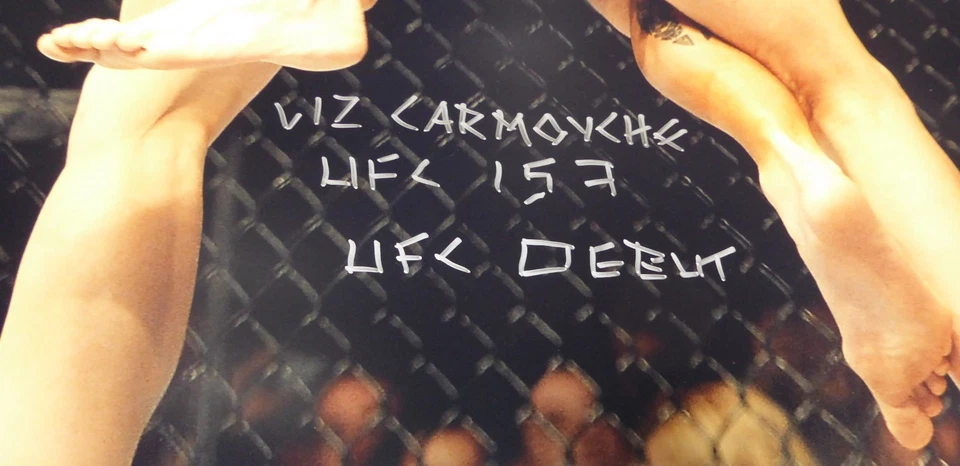 LIZ CARMOUCHE
UFC 157
UFC DEBUT